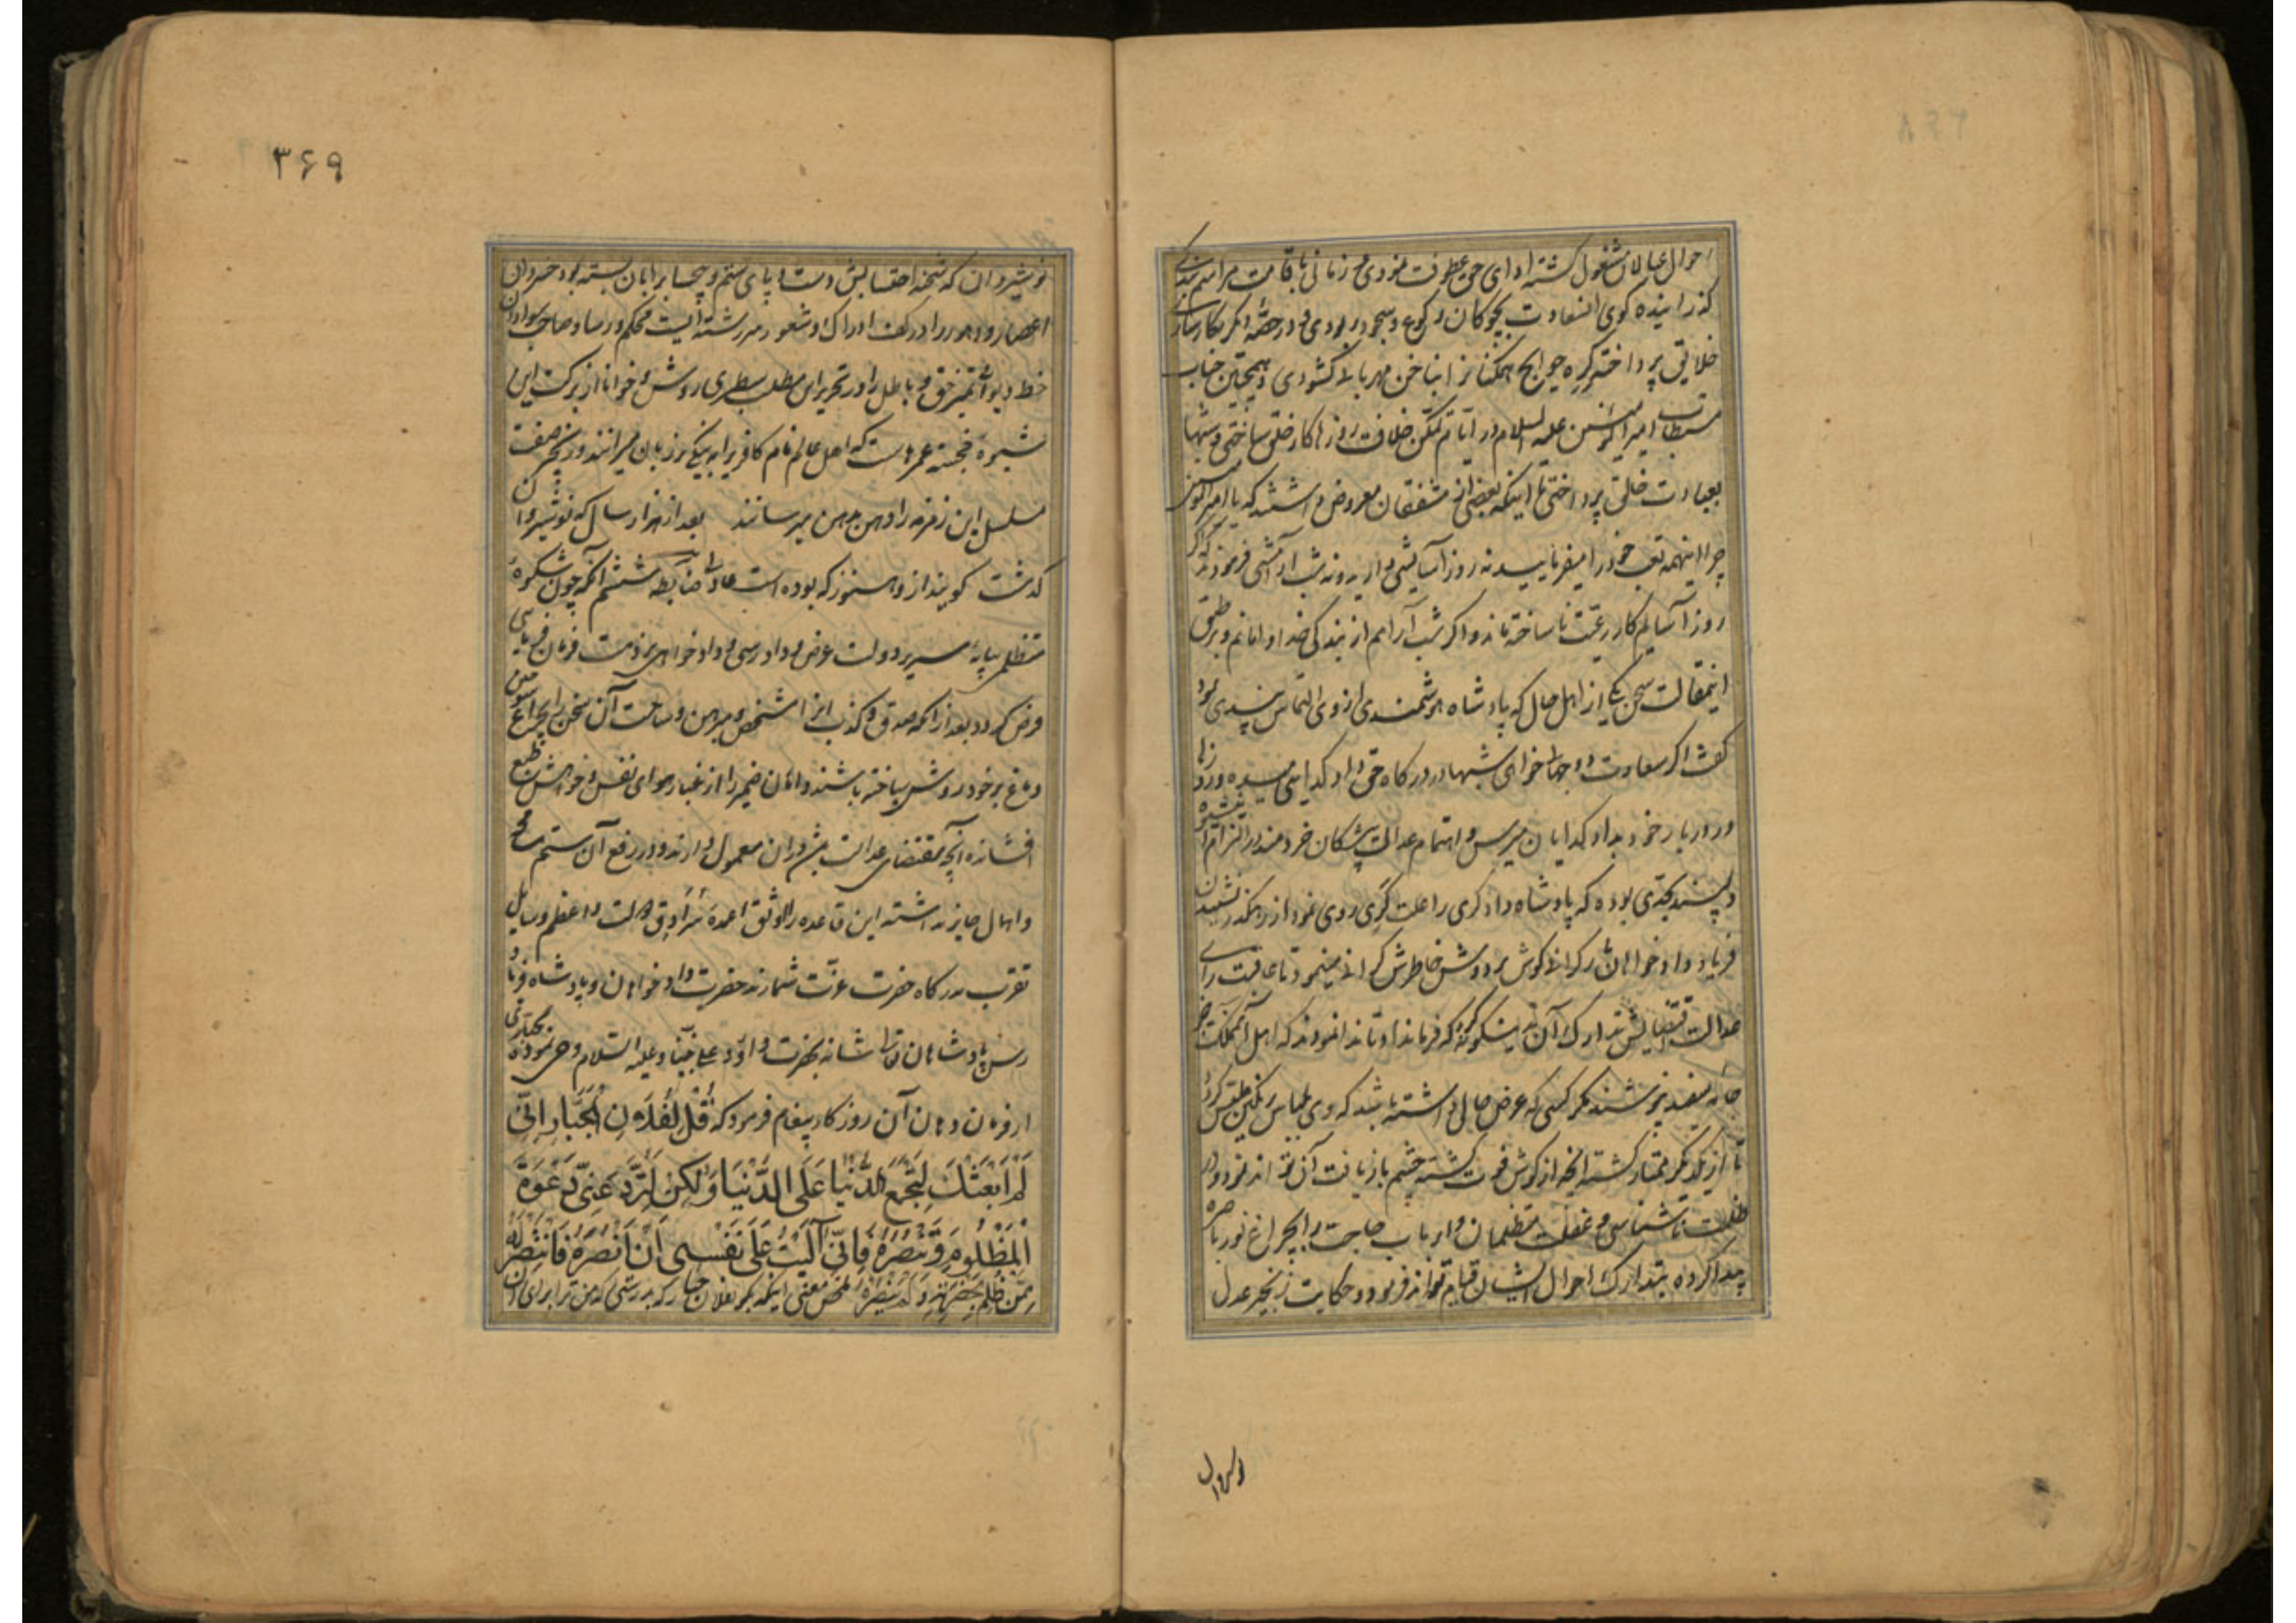 احوال عیالان مشغول کشته ادای حق عطوفت نمودی و زمانی باقامت مراسم بندکی
کذرانیده کوی السعادت بچوکان رکوع و سجود ربودی و در حصّه دیکر بکارسازی
خلایق پرداخته کره حوایج همکنانرا بناخن مهربانی کشودی و همچنین جناب
مستطاب امیرالمؤمنین علیه السلام در ایّام تمکّن خلافت روزها کار خلق ساختی و شبها
بعبادت خالق پرداختی تا اینکه بعضی از مشفقان معروض داشتند که یا امیرالمؤمنین
چرا اینهمه تعب خود را میفرمایید نه روز آسایشی دارید و نه شب آرامشی فرمودند که اکر
روز آسایم کار رعیّت ناساخته ماند و اکر شب آرامم از بندکی خدا وامانم و بر طبق
اینمقالت سخن یکی از اهل حال که پادشاه هوشمندی از وی التماس پندی نمود
کفت اکر سعادت دو جهان خواهی شبها در درکاه حق داد کدایی میده و روزها
در دربار خود بداد کدایان میرس و اهتمام عدالت پیشکان خردمند در التزام این شیوهٔ
دلپسند بحدّی بوده که پادشاه دادکری را علت کری روی نمود از رهکذر نشنیدن
فریاد دادخواهان کرانی کوش بر دوش خاطرش کرانی مینمود تا عاقبت رای
عدالت اقتضایش تدارک آن بدینکونه کرد که فرمان داد تا ندا نمودند که اهل آنمملکت
جامه سفید پوشند مکر کسی که عرض حالی داشته باشد که وی بلباس رنکین ملبّس کردد
تا از یکدیکر ممتاز کشته آنچه از کوش فوت کشته بچشم باز یافت آن تواند نمود و در
ظلمت ناشناسی و غفلت متظلمان و ارباب حاجت را بچراغ نور باصره
پیدا کرده بتدارک احوال ایشان قیام تواند فرمود و حکایت زنجیر عدل
۳۶۹
نوشیروان که شحنه احتسابش دست و پای ستم و جسابرانان بسته بود خسروان
اعصار و دهور را در کف ادراک و شعور سررشته ایست محکم و رسا و صاحب سوادان
خط دیوانی تمیز حق و باطل را در تحریر این مطلب سطری روشن و خوانا از برکت این
شیوهٔ خجسته عمرهاست که اهل عالم نام کافری را به نیکی بر زبان میرانند و زنجیر صفت
مسلسل این زمزمه را دهن بدهن میرسانند بعد از هزار سال که نوشیروان
کذشت کویند از و هنوز که بوده است عادل ضابطه ششم آنکه چون شکوهٔ
متظلمی بپایهٔ سریر دولت عرض و دادرسی و دادخواهی بر ذمت فرمان فرمایی
فرض کردد بعد از آنکه صدق و کذب آنرا مشخص و مبرهن و ساحت آن سخن را بچراغ
دماغ بر خود روشن ساخته باشند دامان ضمیر را از غبار هوای نفس و خواهش طبع
افشانده آنچه مقتضای عدالت بیشتر دران معمول دارند و در رفع آن ستم مسامحه
و اهمال جایز نداشته این قاعده را اوثق اعمدهٔ سرادق دولت و اعظم وسایل
تقرب بدرکاه حضرت عزّت شمارند حضرت دادخواهان و پادشاه فریاد
رس پادشاهان تعالی شانه بحضرت داود علی نبیّنا و علیه السّلام وحی نموده بجبّاری
از فرمان دهان آن روزکار پیغام فرمود که قُلْ لِفُلانِ الْجَبَّارِ اِنّی
لَمْ اَبْعَثْکَ لِتَجْمَعَ الدُّنْیَا عَلَی الدُّنْیَا وَلکِنْ لِتَرُدَّ عَنِّی دَعْوَةَ
الْمَظْلُومِ وَتَنْصُرَهُ فَاِنّی آلَیْتُ عَلَی نَفْسی اَنْ اَنْصُرَهُ فَانْتَصِرَ لَهُ
مِمَّنْ ظَلَمَ بِحَضْرَتِهِ وَلَمْ یَنْصُرْهُ ملخص معنی اینکه بکو بفلان جبّار که بدرستی که من ترا برای آن